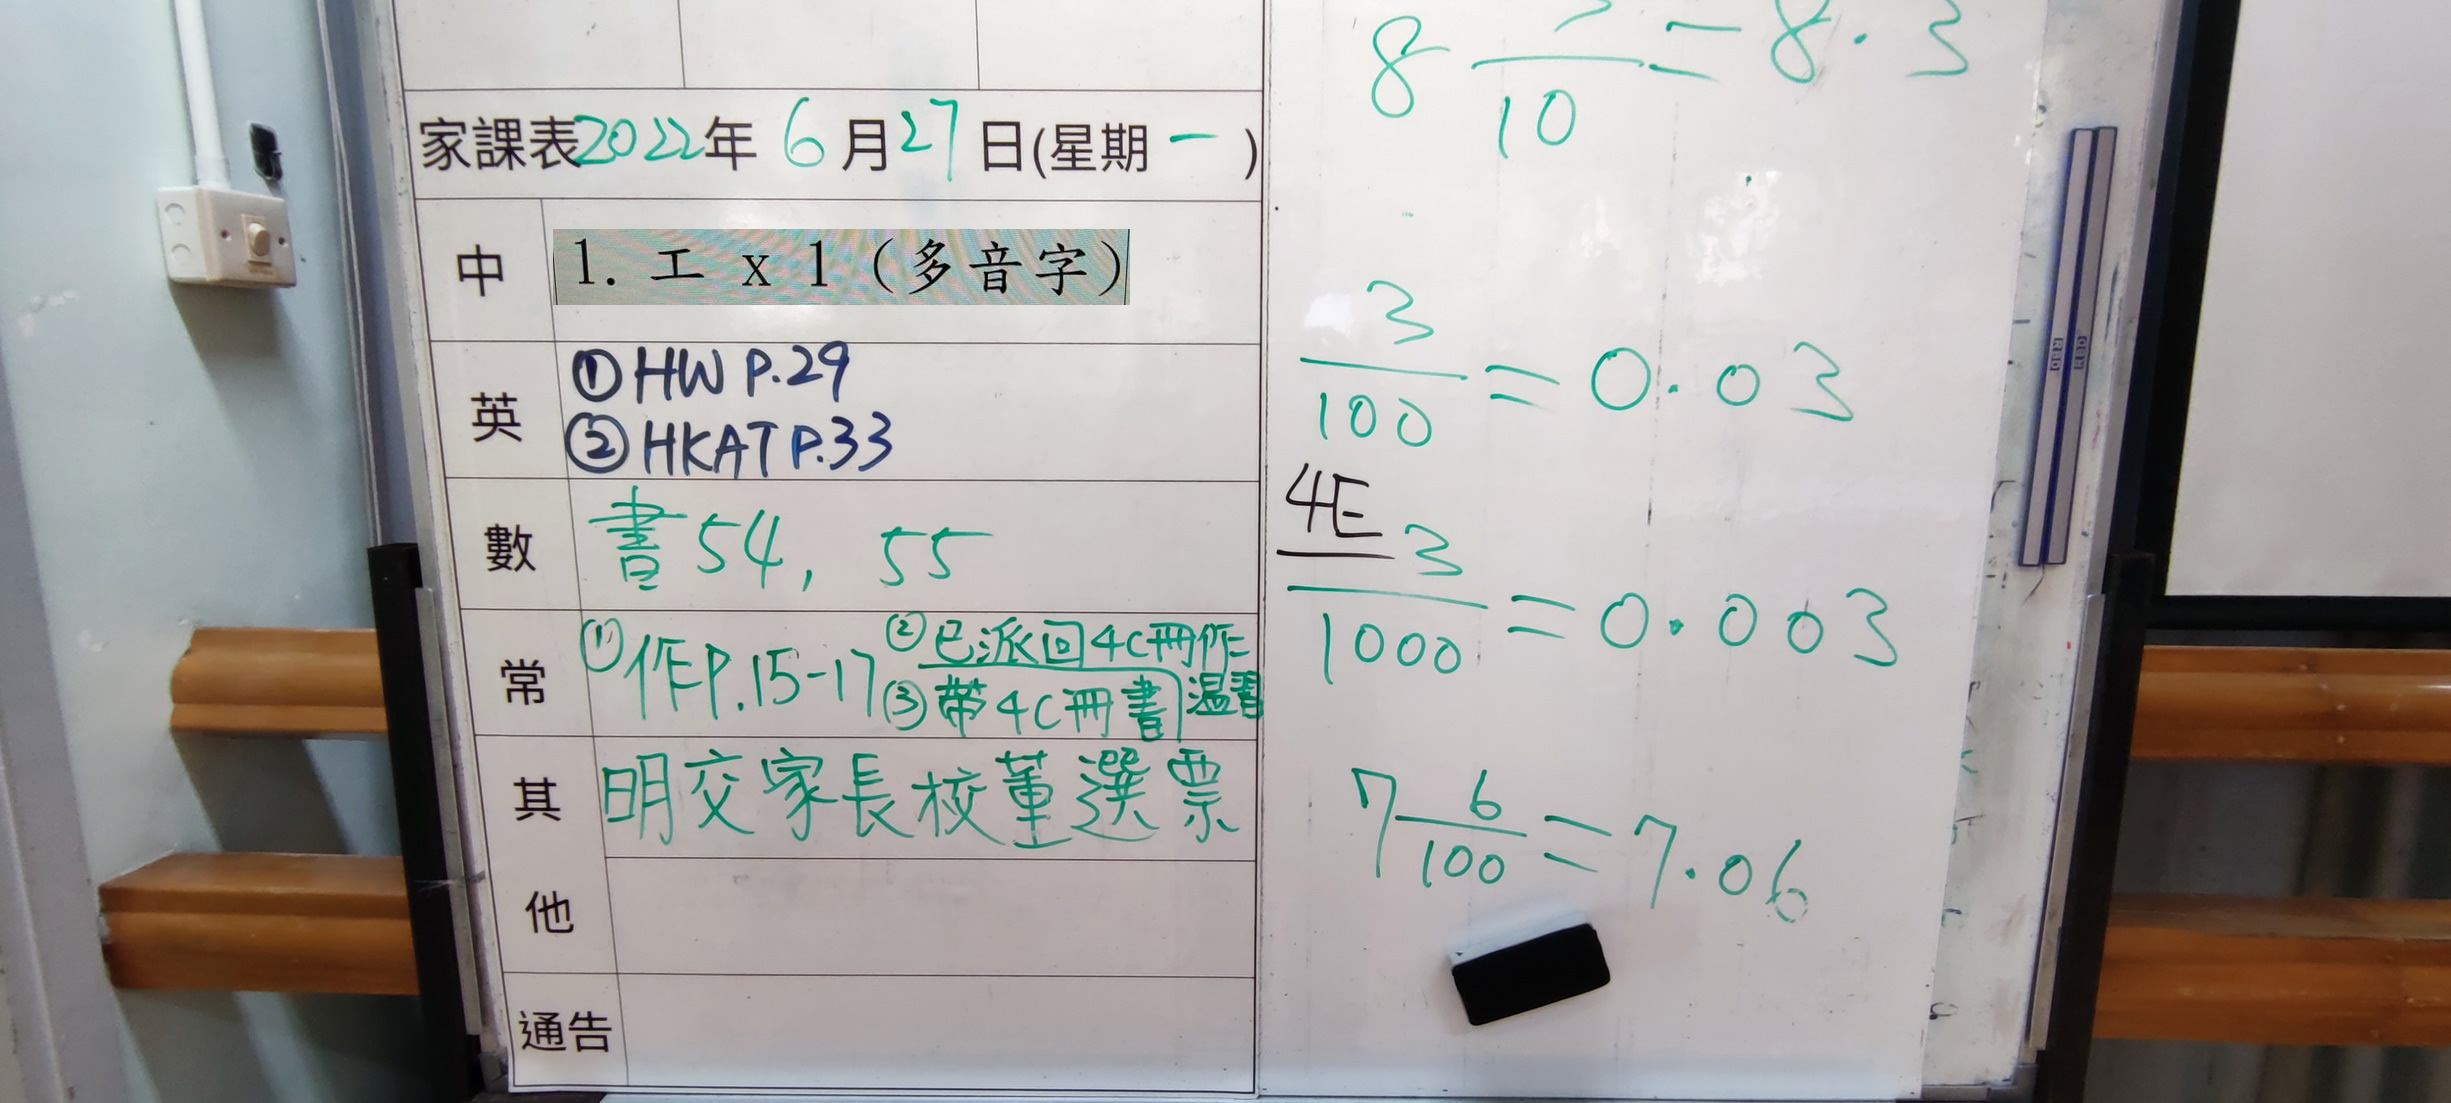 家課表2022年 6月27日(星期一)
中
1. 工 x 1 (多音字)
英
①HW P.29
②HKAT P.33
數
書54, 55
常
①作P.15-17
②已派回4C冊作
③帶4C冊書
溫習
其他
明交家長校董選票
通告
8 /10 = 8.3
3/100 = 0.03
4E
3/1000 = 0.003
7 6/100 = 7.06